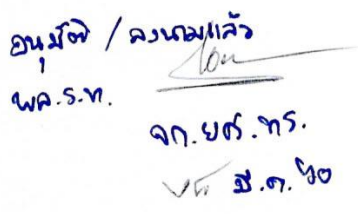 อนุมัติ / ลงนามแล้ว
พล.ร.ท.
จก.ยศ.ทร.
มี.ค. ๖๐